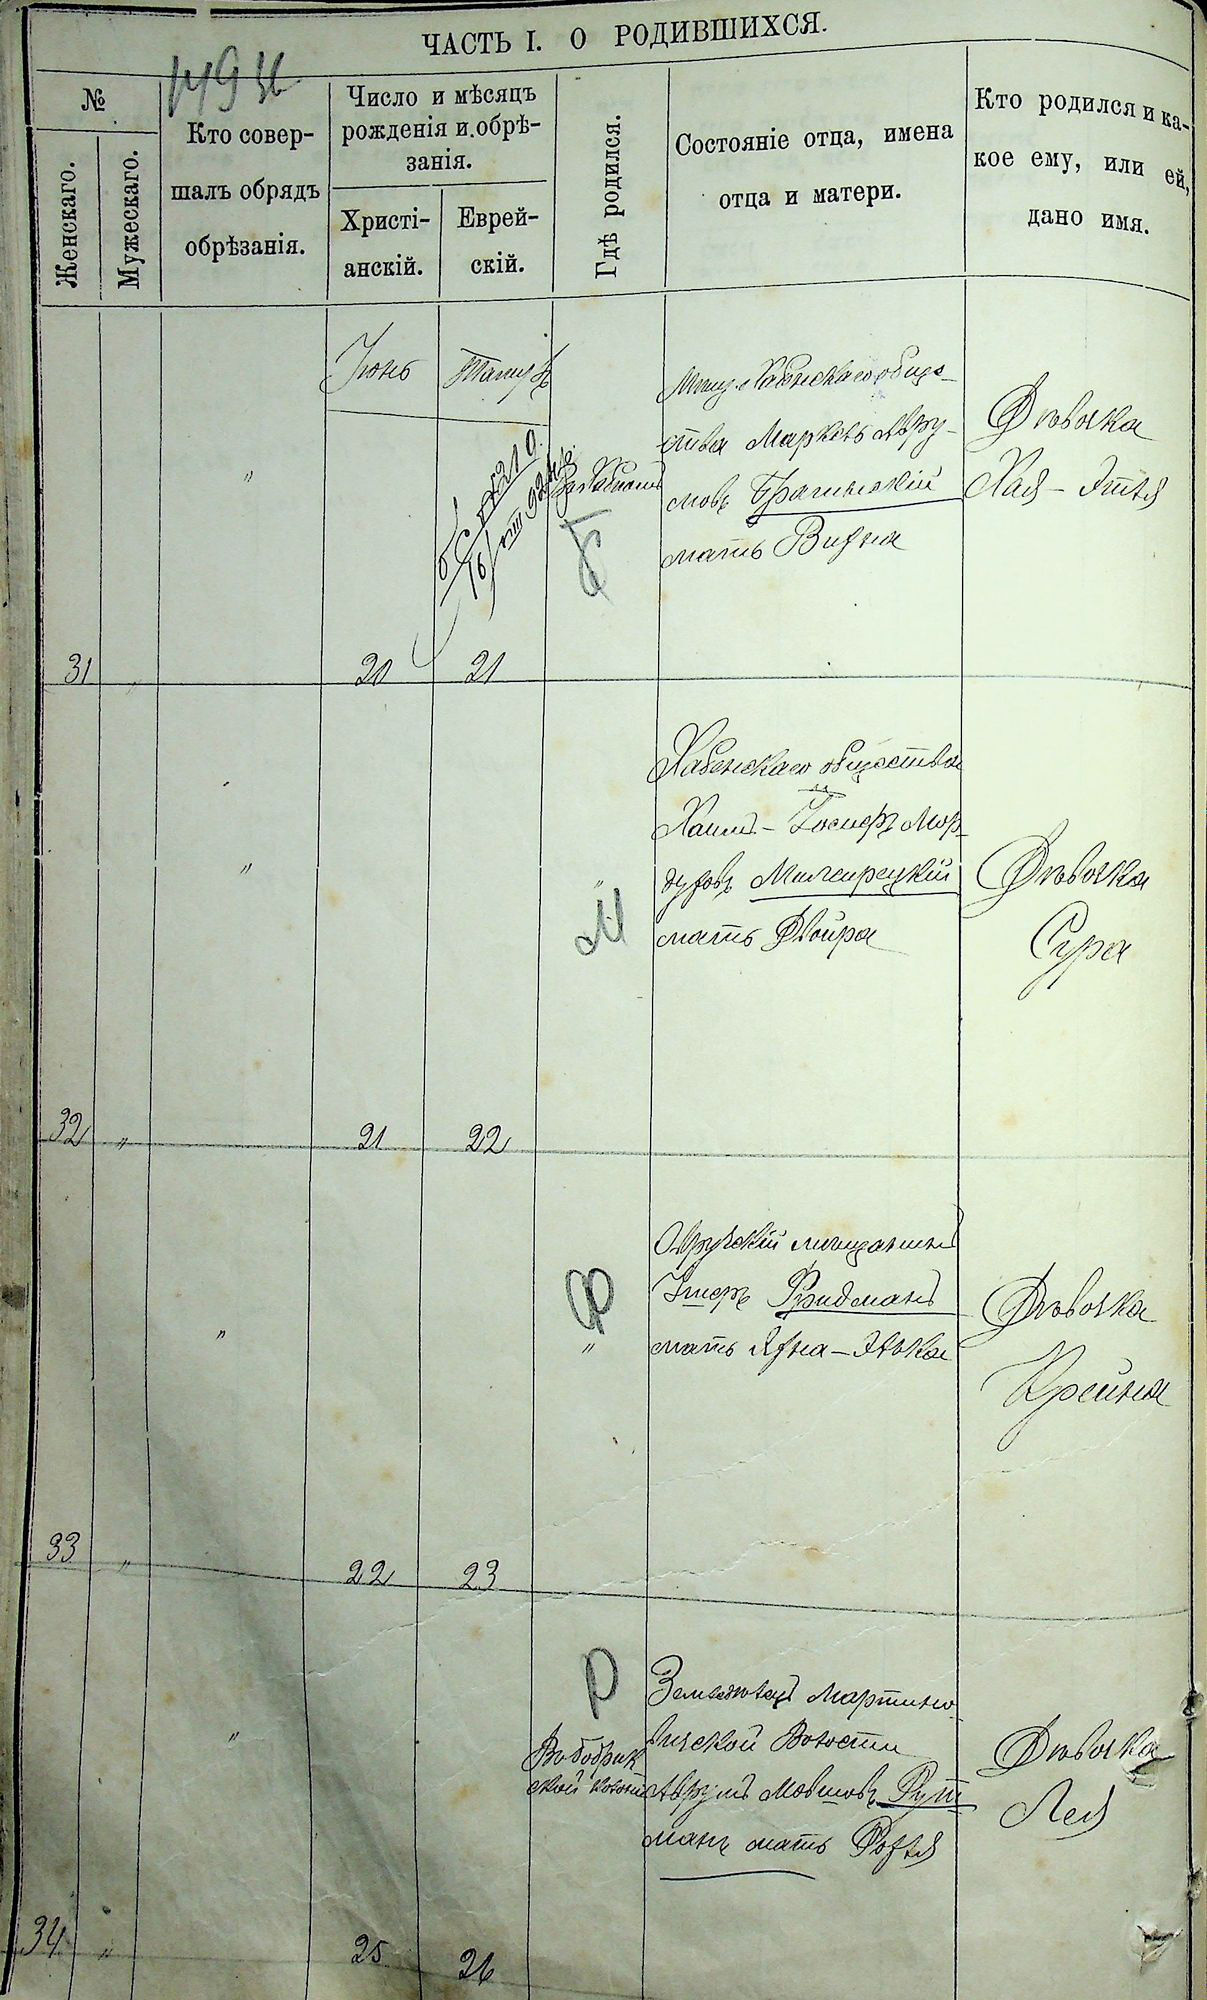 ЧАСТЬ I. О РОДИВШИХСЯ.
№
Женскаго.
Мужескаго.
Кто совер-
шалъ обрядъ
обрѣзанія.
Число и мѣсяцъ
рожденія и обрѣ-
занія.
Христі-
анскій.
Еврей-
скій.
Гдѣ родился.
Состояніе отца, имена
отца и матери.
Кто родился и ка-
кое ему, или ей,
дано имя.
Іюнь
Тамузъ
31
"
"
20
21
Хабенскаго обще-
ства Маркъ Авру-
мовъ Брагинскій
мать
Дѣвочка
Хая-Этля
32
"
"
21
22
"
М
Хабенскаго общества
Хаимъ-Іосифъ Мор-
духовъ
мать Двойра
Дѣвочка
Сура
33
"
"
22
23
Ф
"
Овручскій мѣщанинъ
Фридманъ
мать
Дѣвочка
Крейна
34
"
"
25
26
Р
Земледѣлецъ Мартино-
вичской Волости
Аврумъ Мовшовъ Рут-
манъ мать Рохля
Дѣвочка
Лея